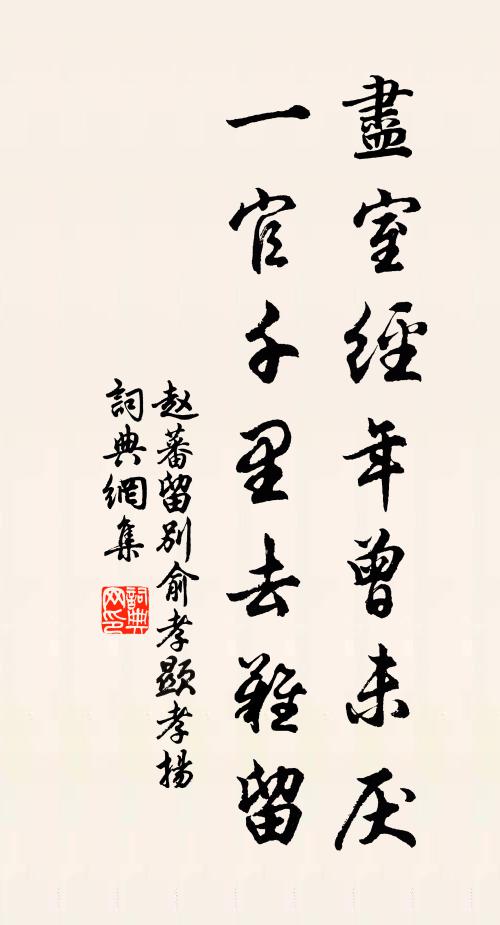 盡室經年曾未厌
一官千里去難留
赵蕃留别俞孝顯孝揚
詞典網集
詞典网印